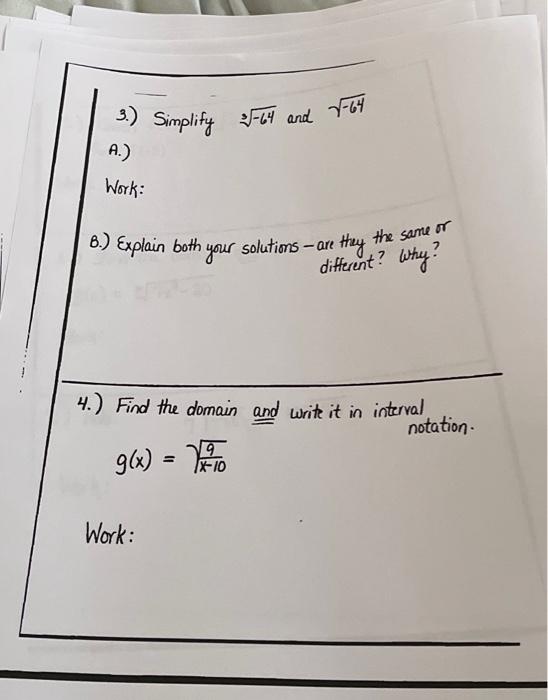 3.) Simplify ∛-64 and √-64
A.)
Work:
B.) Explain both your solutions – are they the same or
different? Why?
4.) Find the domain and write it in interval
notation.
g(x) = √(9/(x-10))
Work: